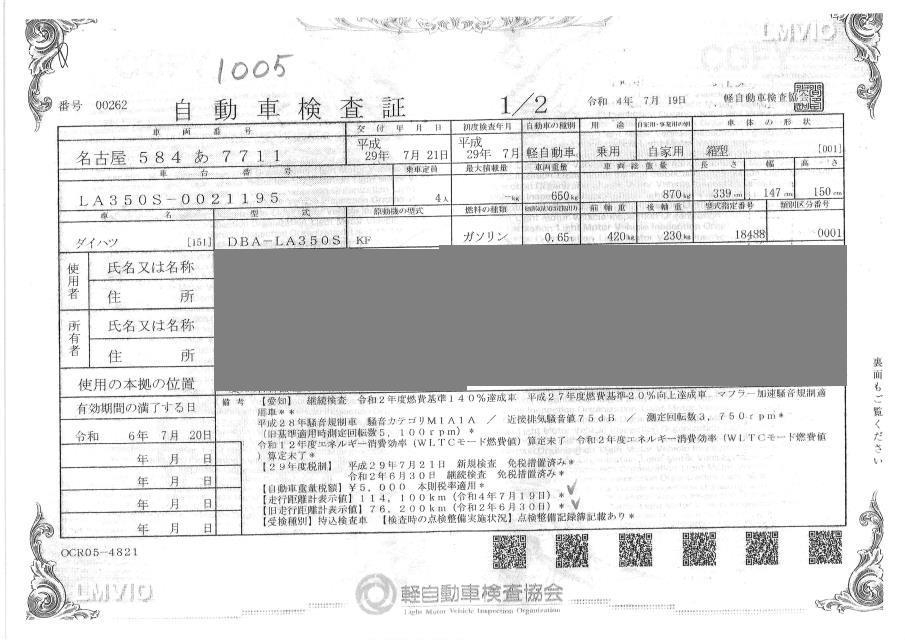 LMVIO
COPY
1005
番号 00262
自動車検査証 1/2 令和 4年 7月 19日 軽自動車検査協会
車両番号 交付年月日 初度検査年月 自動車の種別 用途 自家用・事業用の別 車体の形状
名古屋 584 あ 7711 平成 29年 7月 21日 平成 29年 7月 軽自動車 乗用 自家用 箱型 [001]
車台番号 乗車定員 最大積載量 車両重量 車両総重量 長さ 幅 高さ
LA350S-0021195 4人 -kg 650kg 870kg 339cm 147cm 150cm
車名 型式 原動機の型式 燃料の種類 前軸重 後軸重 型式指定番号 類別区分番号
ダイハツ [151] DBA-LA350S KF ガソリン 0.65 420kg 230kg 18488 0001
使用者
氏名又は名称
住所
所有者
氏名又は名称
住所
使用の本拠の位置
有効期間の満了する日
令和 6年 7月 20日
年 月 日
年 月 日
年 月 日
年 月 日
備考 【愛知】 継続検査 令和2年度燃費基準140%達成車 平成27年度燃費基準20%向上達成車 マフラー加速騒音規制適
用車**
平成28年騒音規制車 騒音カテゴリM1A1A / 近接排気騒音値75dB / 測定回転数3,750rpm*
(旧基準適用時測定回転数5,100rpm)*
令和12年度エネルギー消費効率(WLTCモード燃費値)算定未了 令和2年度エネルギー消費効率(WLTCモード燃費値
)算定未了*
【29年度税制】 平成29年7月21日 新規検査 免税措置済み*
令和2年6月30日 継続検査 免税措置済み*
【自動車重量税額】¥5,000 本則税率適用*
【走行距離計表示値】114,100km(令和4年7月19日)*
【旧走行距離計表示値】76,200km(令和2年6月30日)*
【受検種別】持込検査車 【検査時の点検整備実施状況】点検整備記録簿記載あり*
裏面もご覧ください
OCR05-4821
LMVIO
軽自動車検査協会
Light Motor Vehicle Inspection Organization